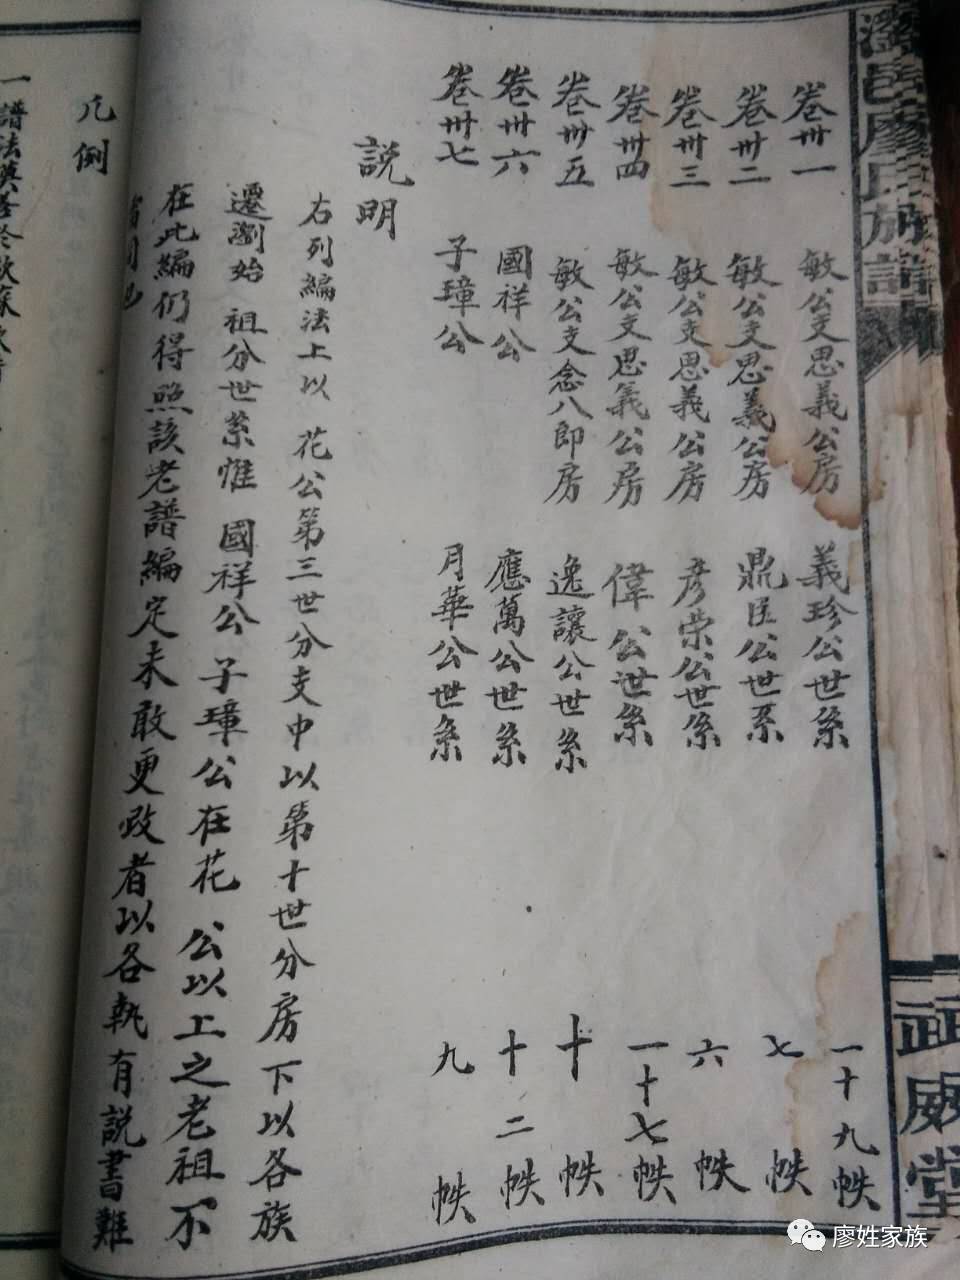 瀏邑廖氏族譜
武威堂
卷卅一 敏公支思義公房 義珍公世系 一十九帙
卷卅二 敏公支思義公房 鼎臣公世系 七帙
卷卅三 敏公支思義公房 彥荣公世系 六帙
卷卅四 敏公支思義公房 偉公世系 一十七帙
卷卅五 敏公支念八郎房 逸讓公世系 十帙
卷卅六 國祥公 應萬公世系 十二帙
卷卅七 子璋公 月華公世系 九帙
説明
右列編法上以 花公第三世分支中以第十世分房下以各族
遷瀏始祖分世系惟 國祥公子璋公在花公以上之老祖不
在此編仍得照該老譜編定未敢更改者以各執有説書難
凡例
一譜法
廖姓家族